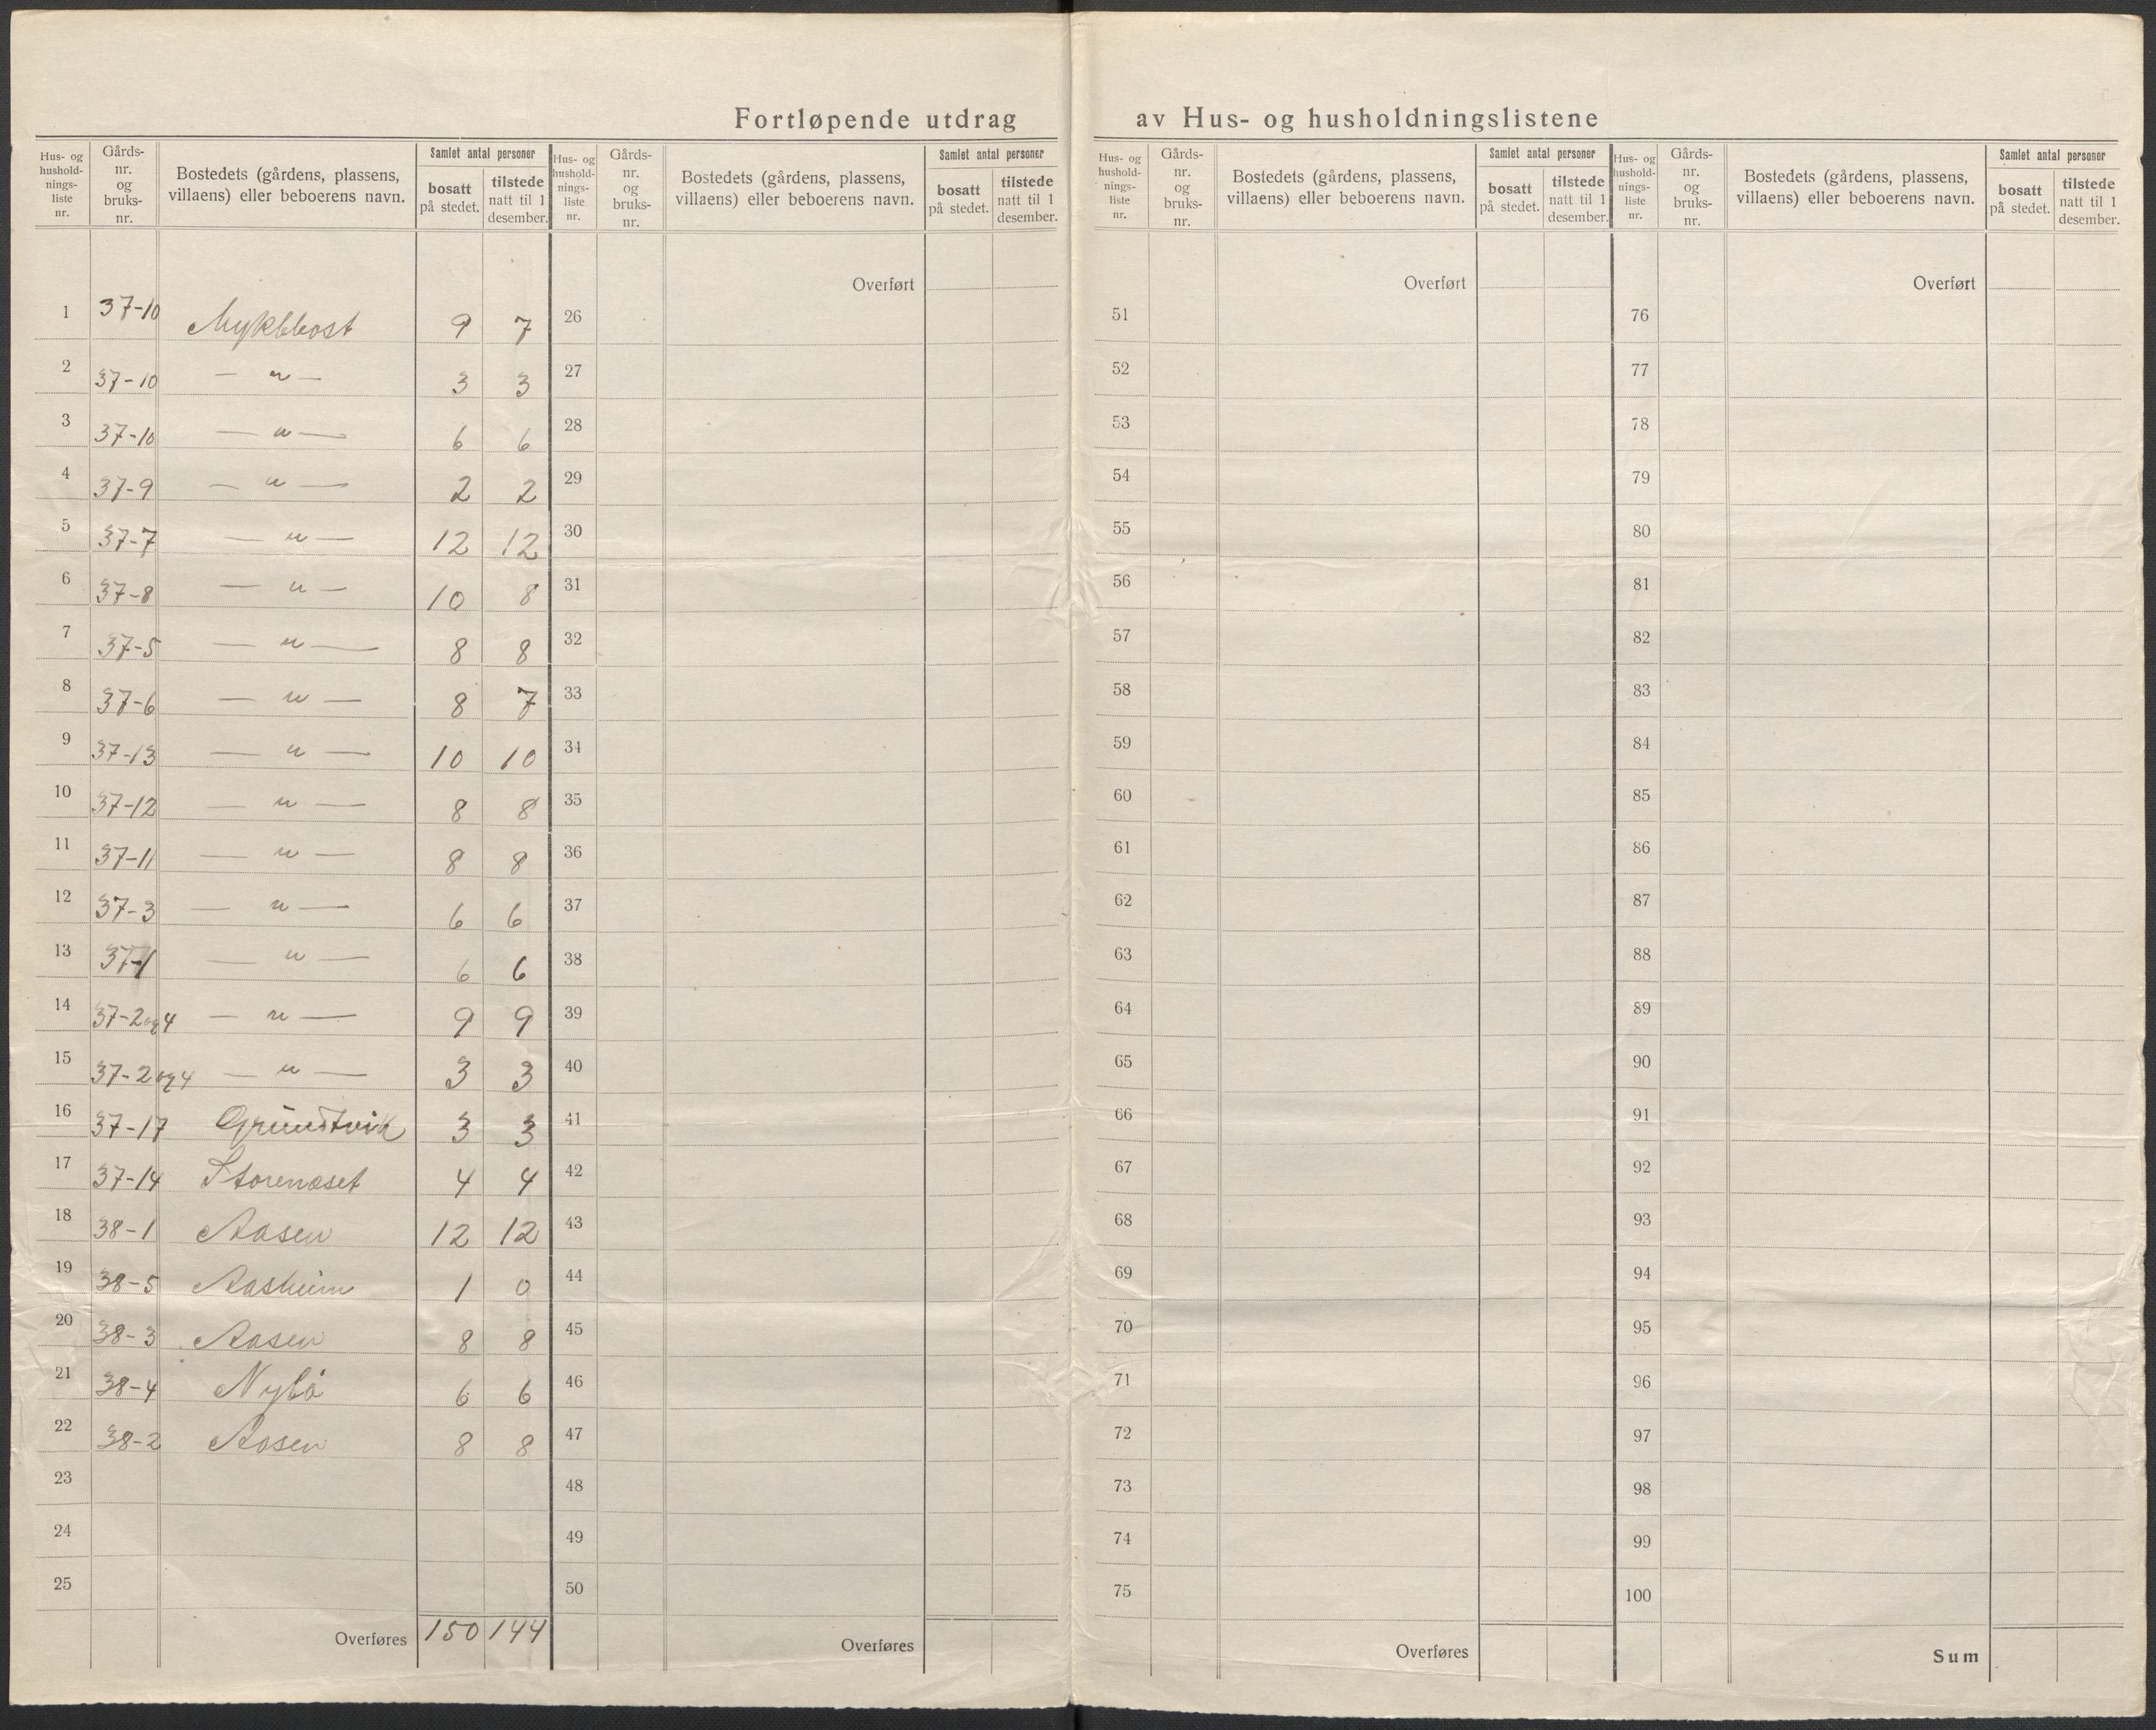 Fortløpende utdrag av Hus- og husholdningslistene
Hus- og hushold-nings-liste nr. | Gårds-nr. og bruks-nr. | Bostedets (gårdens, plassens, villaens) eller beboerens navn. | Samlet antal personer | bosatt på stedet. | tilstede natt til 1 desember.
1 37-10 Myklebost 9 7
2 37-10 — „ — 3 3
3 37-10 — „ — 6 6
4 37-9 — „ — 2 2
5 37-7 — „ — 12 12
6 37-8 — „ — 10 8
7 37-5 — „ — 8 8
8 37-6 — „ — 8 7
9 37-13 — „ — 10 10
10 37-12 — „ — 8 8
11 37-11 — „ — 8 8
12 37-3 — „ — 6 6
13 37-1 — „ — 6 6
14 37-2og4 — „ — 9 9
15 37-2og4 — „ — 3 3
16 37-17 Grundtvik 3 3
17 37-14 Storeneset 4 4
18 38-1 Aasen 12 12
19 38-5 Aasheim 1 0
20 38-3 Aasen 8 8
21 38-4 Nybö 6 6
22 38-2 Aasen 8 8
23
24
25
Overføres 150 144
Hus- og hushold-nings-liste nr. | Gårds-nr. og bruks-nr. | Bostedets (gårdens, plassens, villaens) eller beboerens navn. | Samlet antal personer | bosatt på stedet. | tilstede natt til 1 desember.
Overført
26
27
28
29
30
31
32
33
34
35
36
37
38
39
40
41
42
43
44
45
46
47
48
49
50
Overføres
Hus- og hushold-nings-liste nr. | Gårds-nr. og bruks-nr. | Bostedets (gårdens, plassens, villaens) eller beboerens navn. | Samlet antal personer | bosatt på stedet. | tilstede natt til 1 desember.
Overført
51
52
53
54
55
56
57
58
59
60
61
62
63
64
65
66
67
68
69
70
71
72
73
74
75
Overføres
Hus- og hushold-nings-liste nr. | Gårds-nr. og bruks-nr. | Bostedets (gårdens, plassens, villaens) eller beboerens navn. | Samlet antal personer | bosatt på stedet. | tilstede natt til 1 desember.
Overført
76
77
78
79
80
81
82
83
84
85
86
87
88
89
90
91
92
93
94
95
96
97
98
99
100
Sum